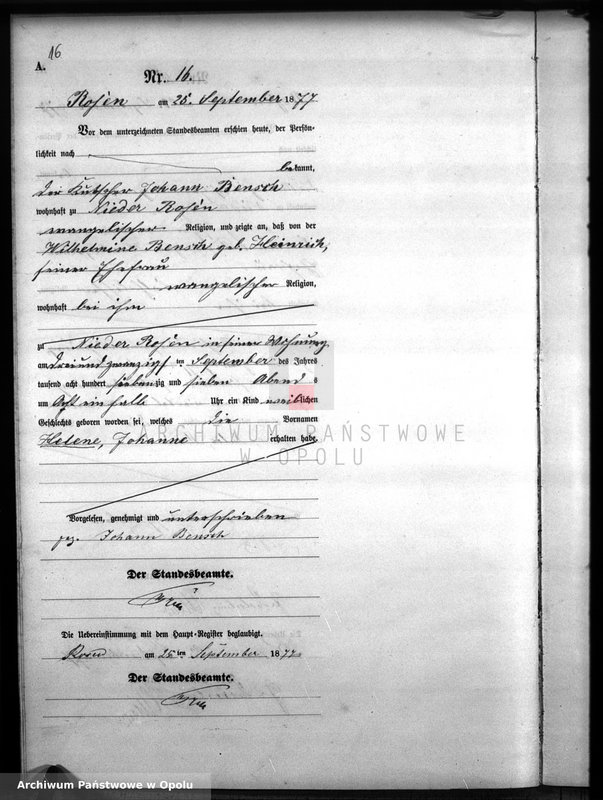 16
A.
Nr. 16.
Rosen am 25. September 1877
Vor dem unterzeichneten Standesbeamten erschien heute, der Persön-
lichkeit nach
bekannt,
der Kutscher Johann Bensch
wohnhaft zu Nieder Rosen
evangelischer Religion, und zeigte an, daß von der
Wilhelmine Bensch geb. Heinrich,
seiner Ehefrau
evangelischer Religion,
wohnhaft bei ihm
zu Nieder Rosen in seiner Wohnung
am dreiundzwanzigsten September des Jahres
tausend acht hundert siebenzig und sieben Abends
um Acht ein halb Uhr ein Kind weiblichen
Geschlechts geboren worden sei, welches die Vornamen
Helene, Johanne erhalten habe.
ARCHIWUM PAŃSTWOWE
W OPOLU
Vorgelesen, genehmigt und unterschrieben
gez. Johann Bensch
Der Standesbeamte.
Die Uebereinstimmung mit dem Haupt-Register beglaubigt.
Rosen am 25ten September 1877
Der Standesbeamte.
Archiwum Państwowe w Opolu